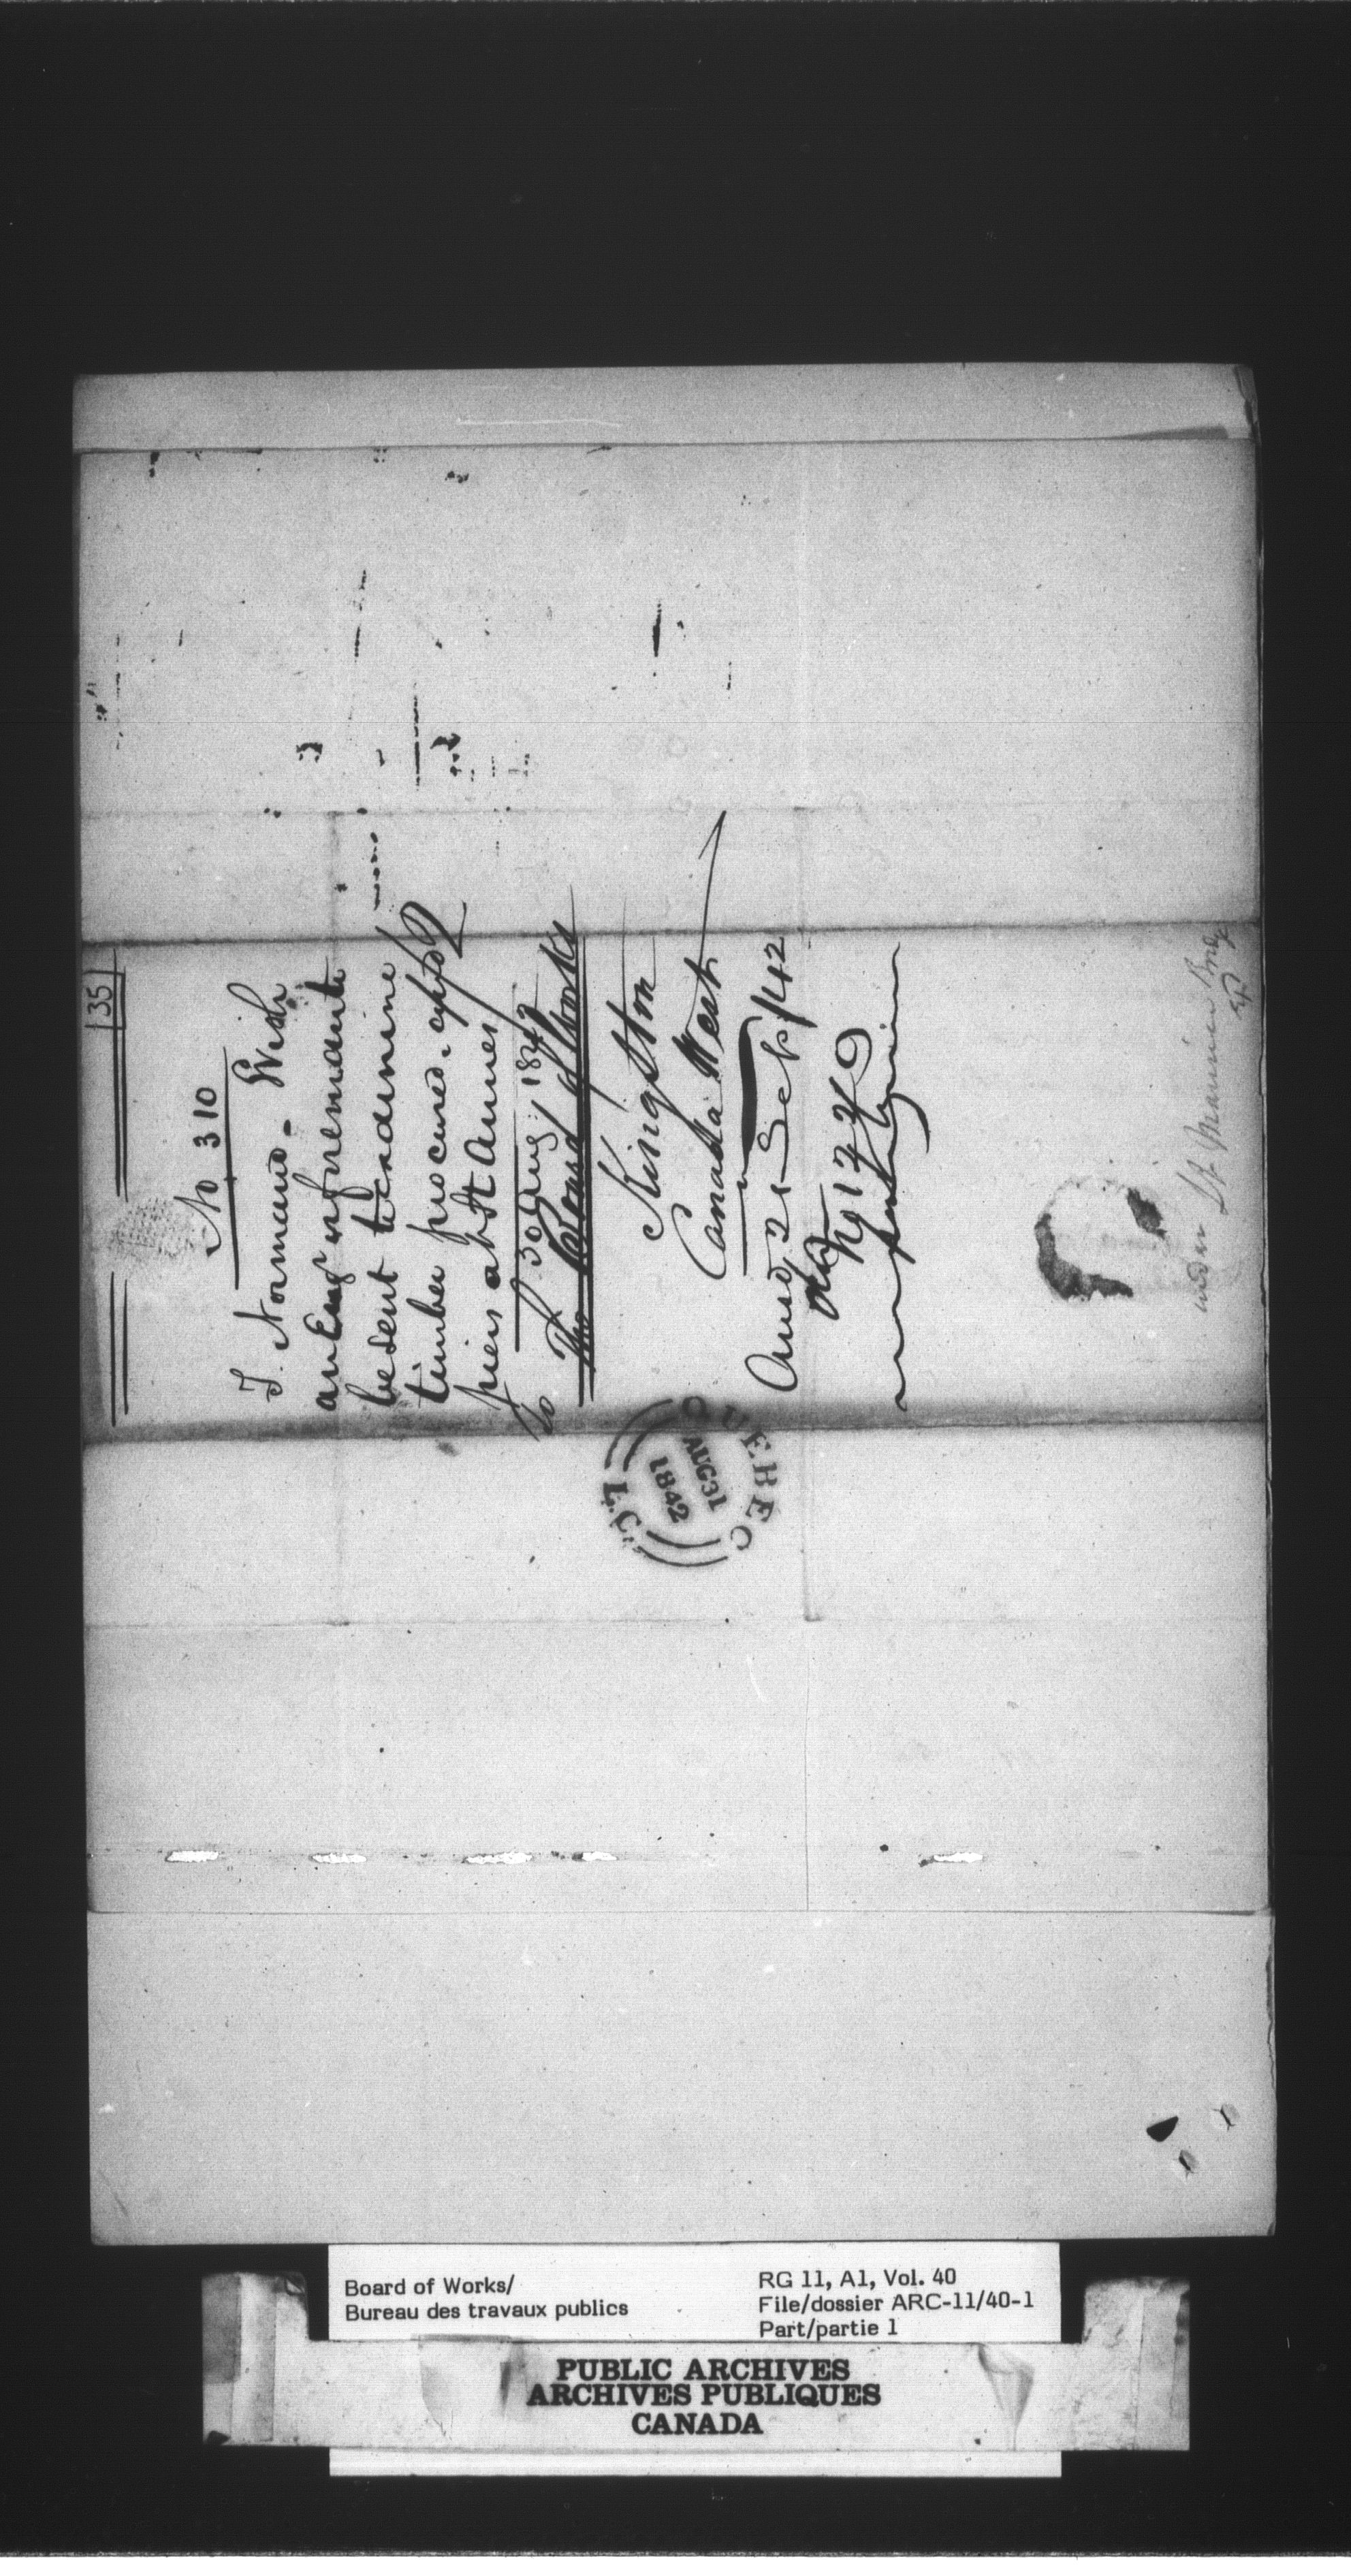 135
No 310
T. Normand - Wish
an Eng refremants
be sent to examine
timber procured &
piers at St Annes
30 Aug 1842
To
The Board of Works
Kingston
Canada West
Answd 2 Sep /42
No 1220
under St Maurice Bridge
QUEBEC
AUG 31
1842
L.C.
Board of Works/
Bureau des travaux publics
RG 11, A1, Vol. 40
File/dossier ARC-11/40-1
Part/partie 1
PUBLIC ARCHIVES
ARCHIVES PUBLIQUES
CANADA